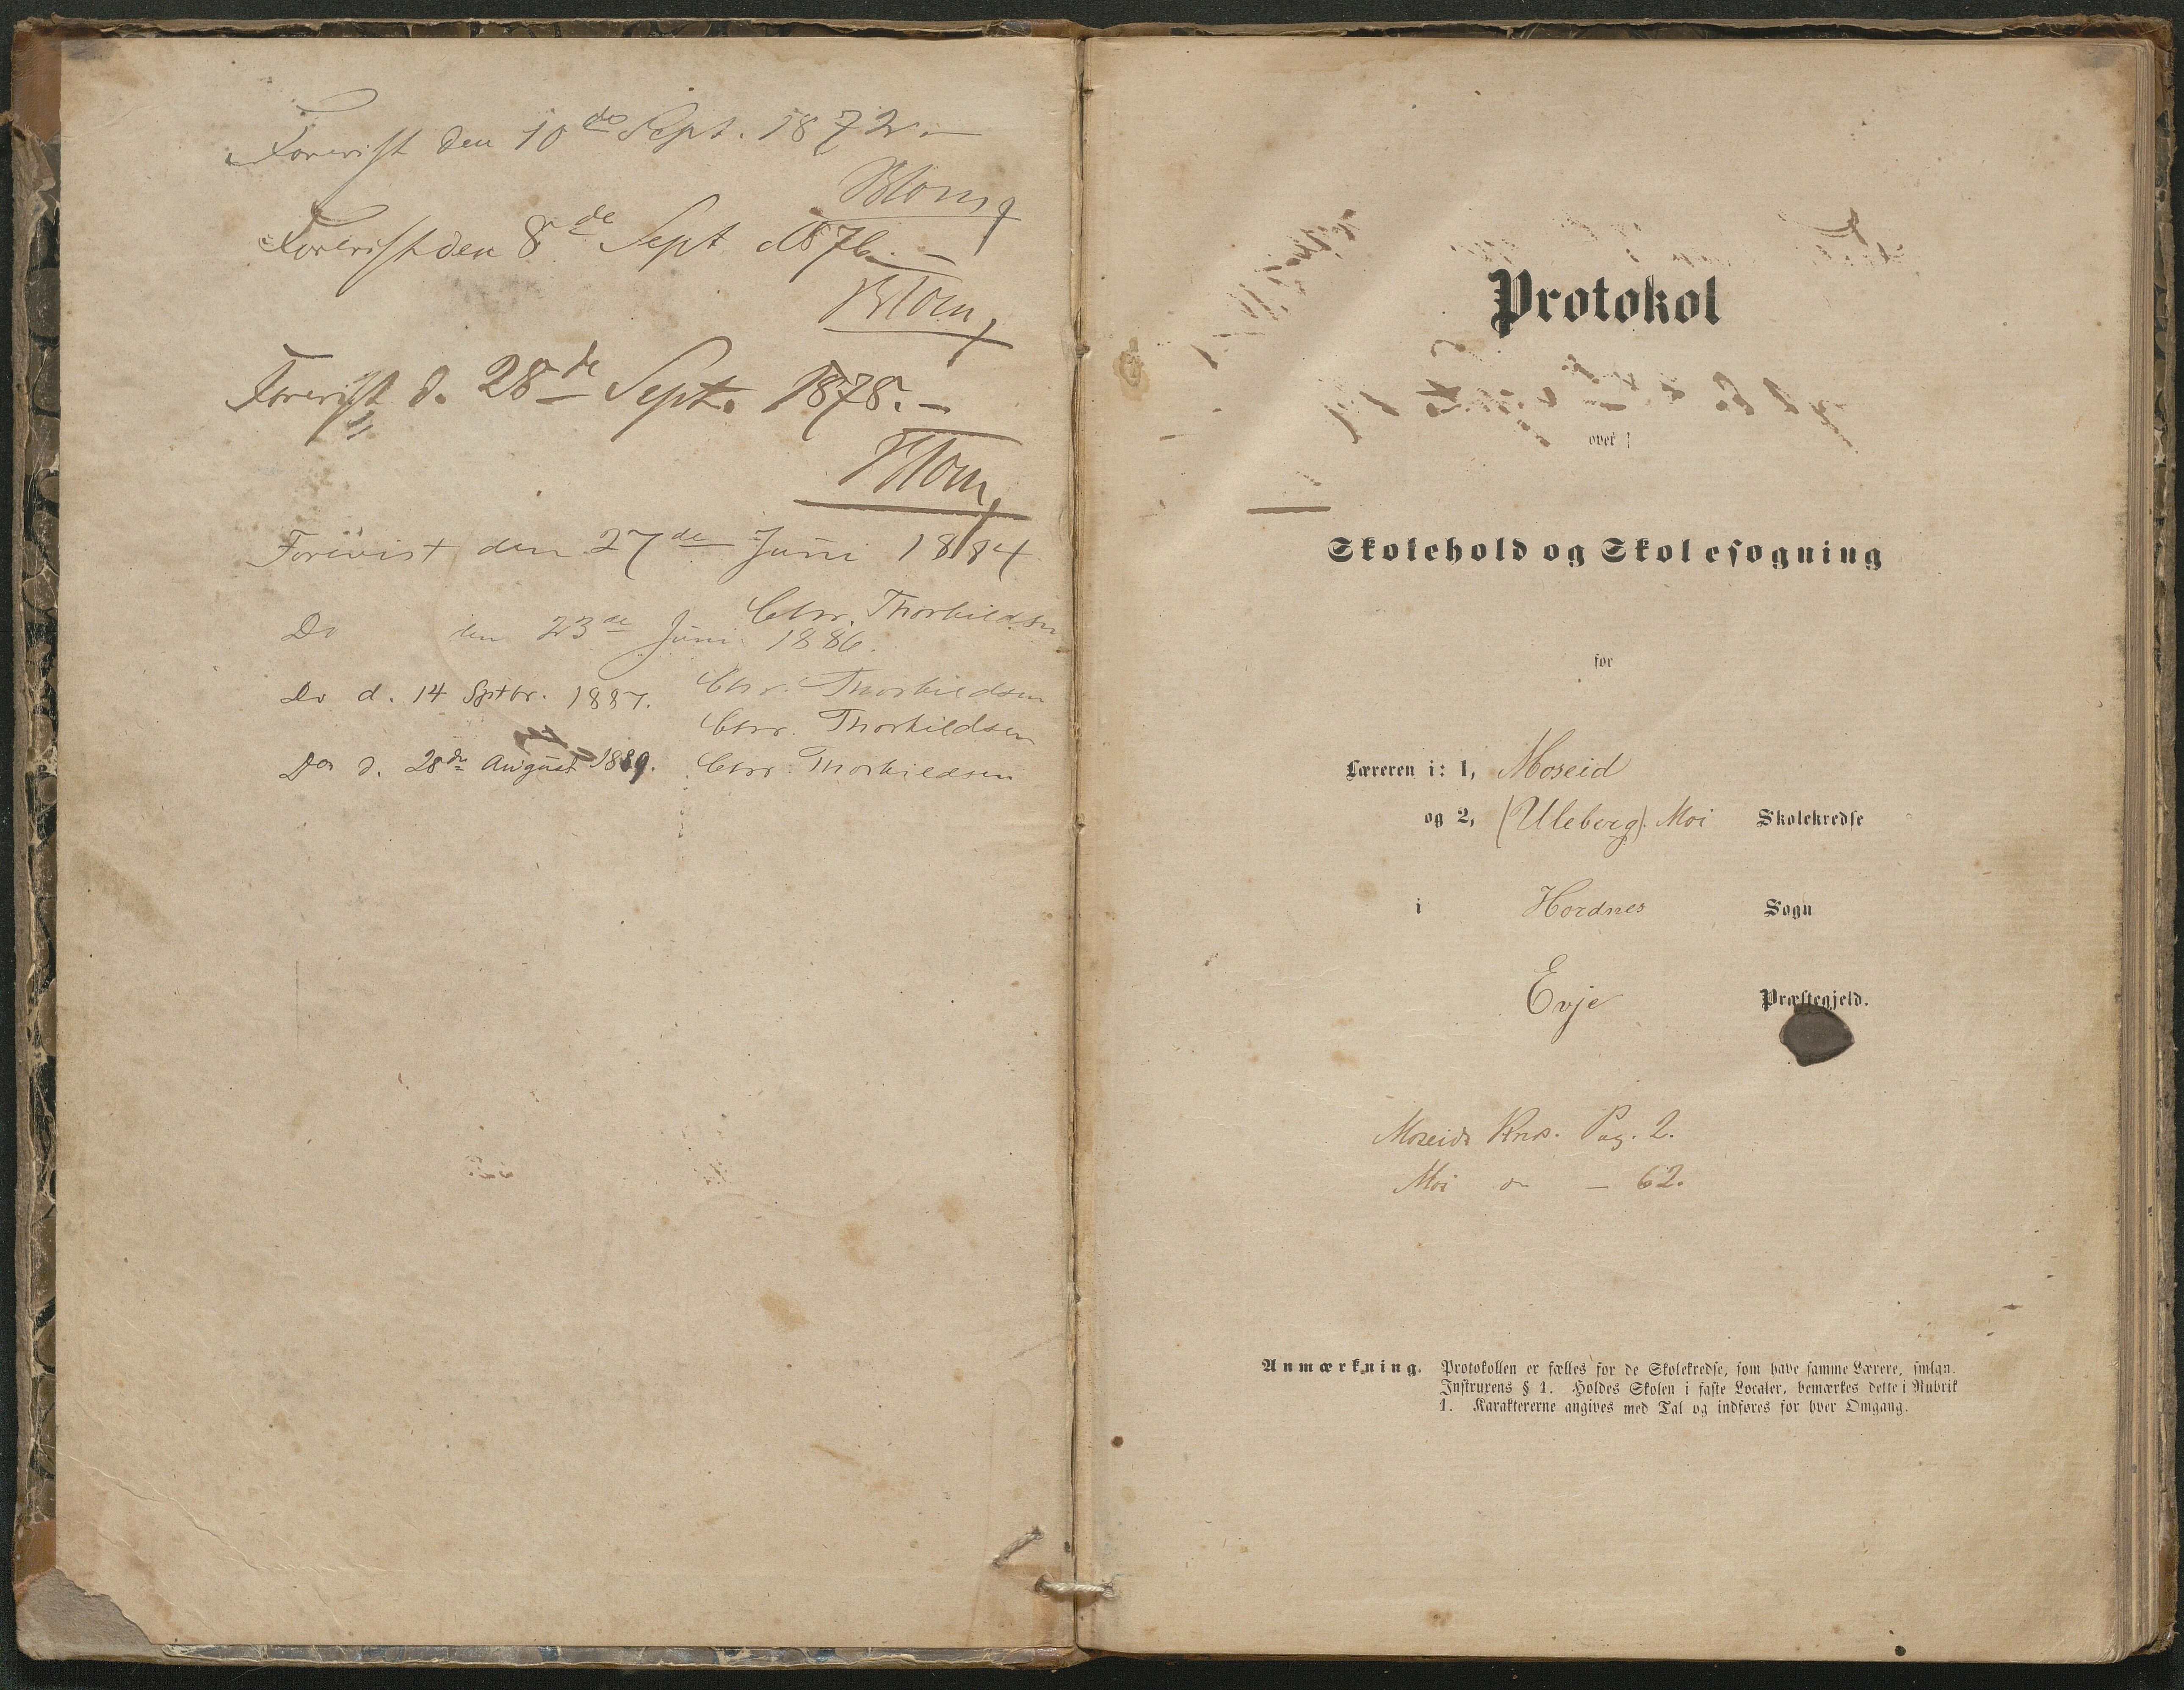 Forevist den 10de Sept. 1872. —
Blom,
Forevist den 8de Sept 1876. —
Blom,
Forevist d. 28de Sept. 1878. —
Blom,
Forevist den 27de Juni 1884
Chr. Thorkildsen
Do den 23de Juni 1886.
Chr. Thorkildsen
Do d. 14 Sptbr. 1887.
Chr. Thorkildsen
Do d. 28de August 1889. Chr. Thorkildsen
Protokol
over
Skolehold og Skolesøgning
for
Læreren i: 1, Moseid
og 2, (Uleberg). Moi Skolekredse
i Hordnes Sogn
Evje Præstegjeld.
Moseids Krds. Pag. 2.
Moi do — 62.
Anmærkning. Protokollen er fælles for de Skolekredse, som have samme Lærere, smlgn.
Instruxens § 1. Holdes Skolen i faste Localer, bemærkes dette i Rubrik
1. Karaktererne angives med Tal og indføres for hver Omgang.